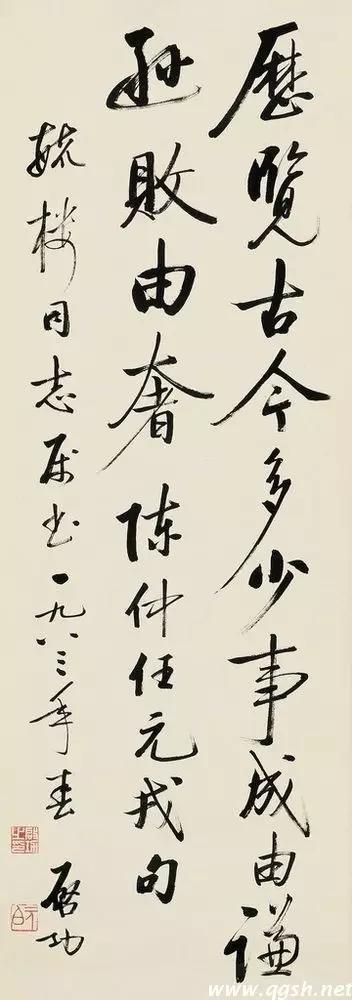 歷覽古今多少事成由謙
遜敗由奢陳仲任元戎句
毓楼同志属书一九八三年春
啓功
啟功之印
元白
www.qgsh.net